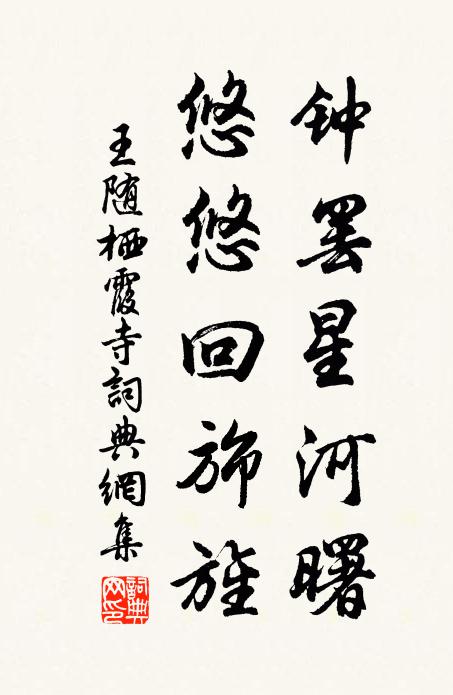 钟罢星河曙
悠悠回旆旌
王随栖霞寺詞典網集
詞典网印